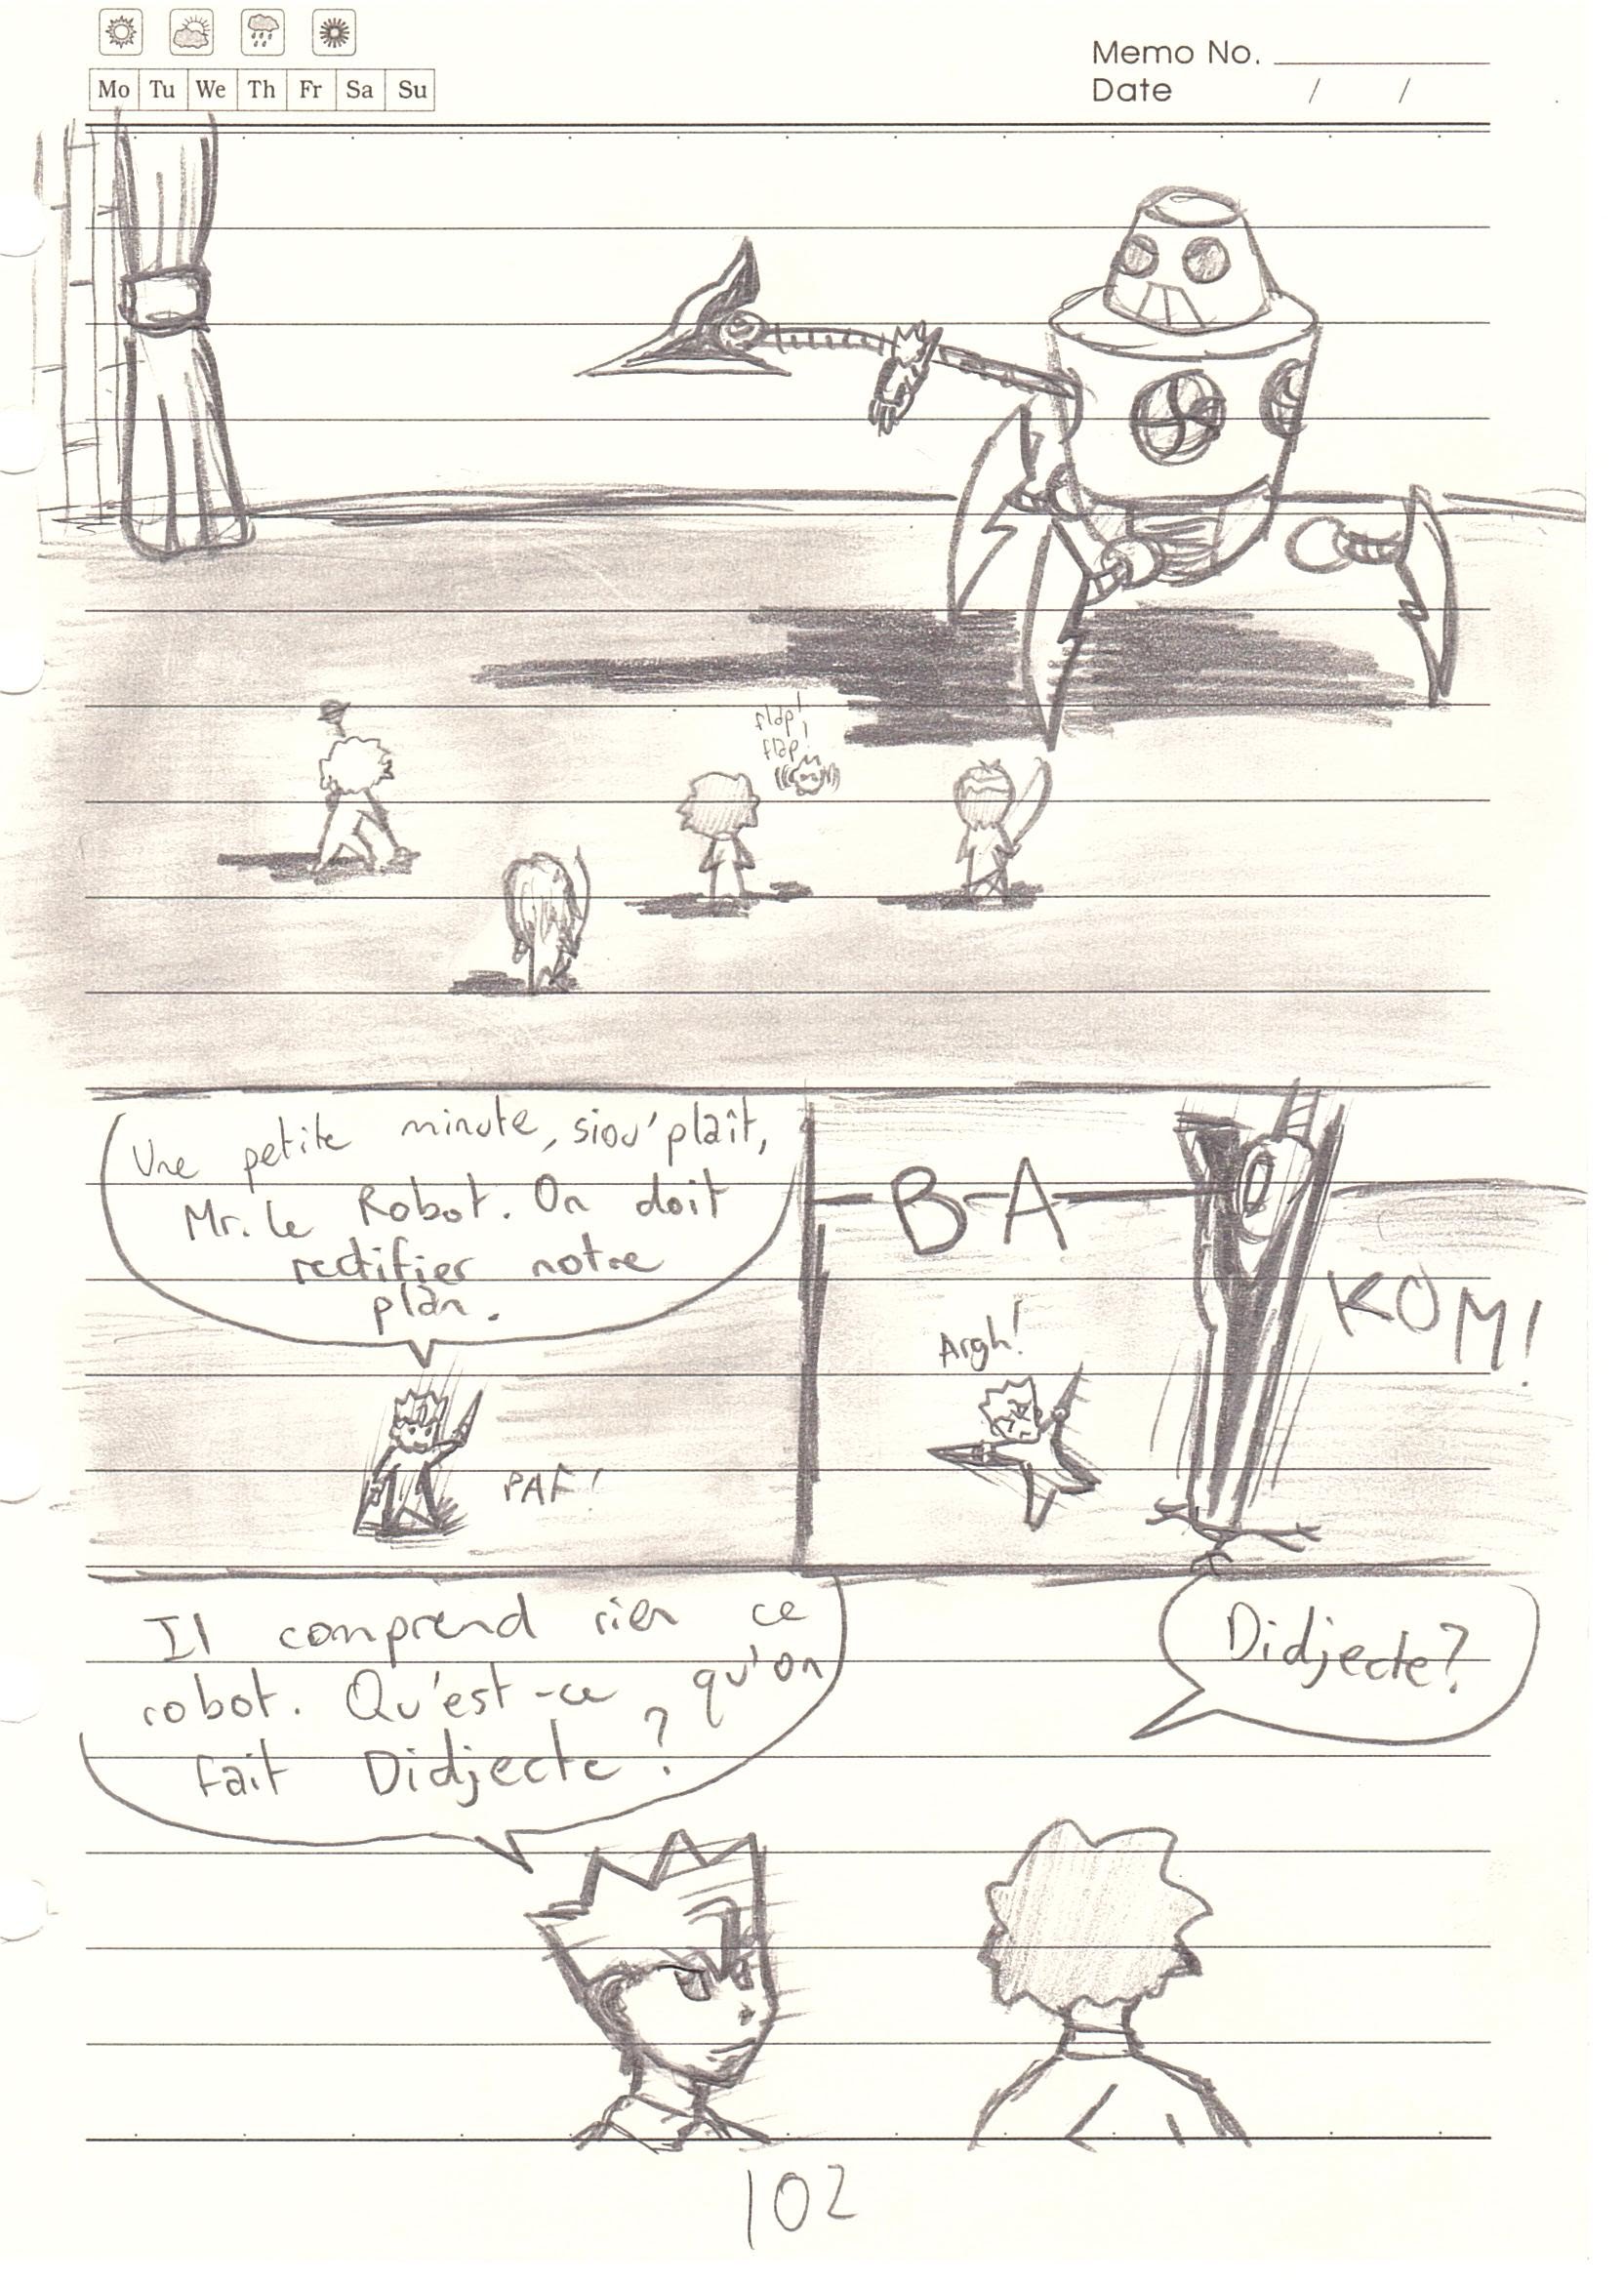 Memo No.
Mo Tu We Th Fr Sa Su
Date / /
flap!
flap!
Une petite minute, siou'plaît,
Mr. le Robot. On doit
rectifier notre
plan.
PAF!
BA
KOM!
Argh!
Il comprend rien ce
robot. Qu'est-ce qu'on
fait Didjecte?
Didjecte?
102